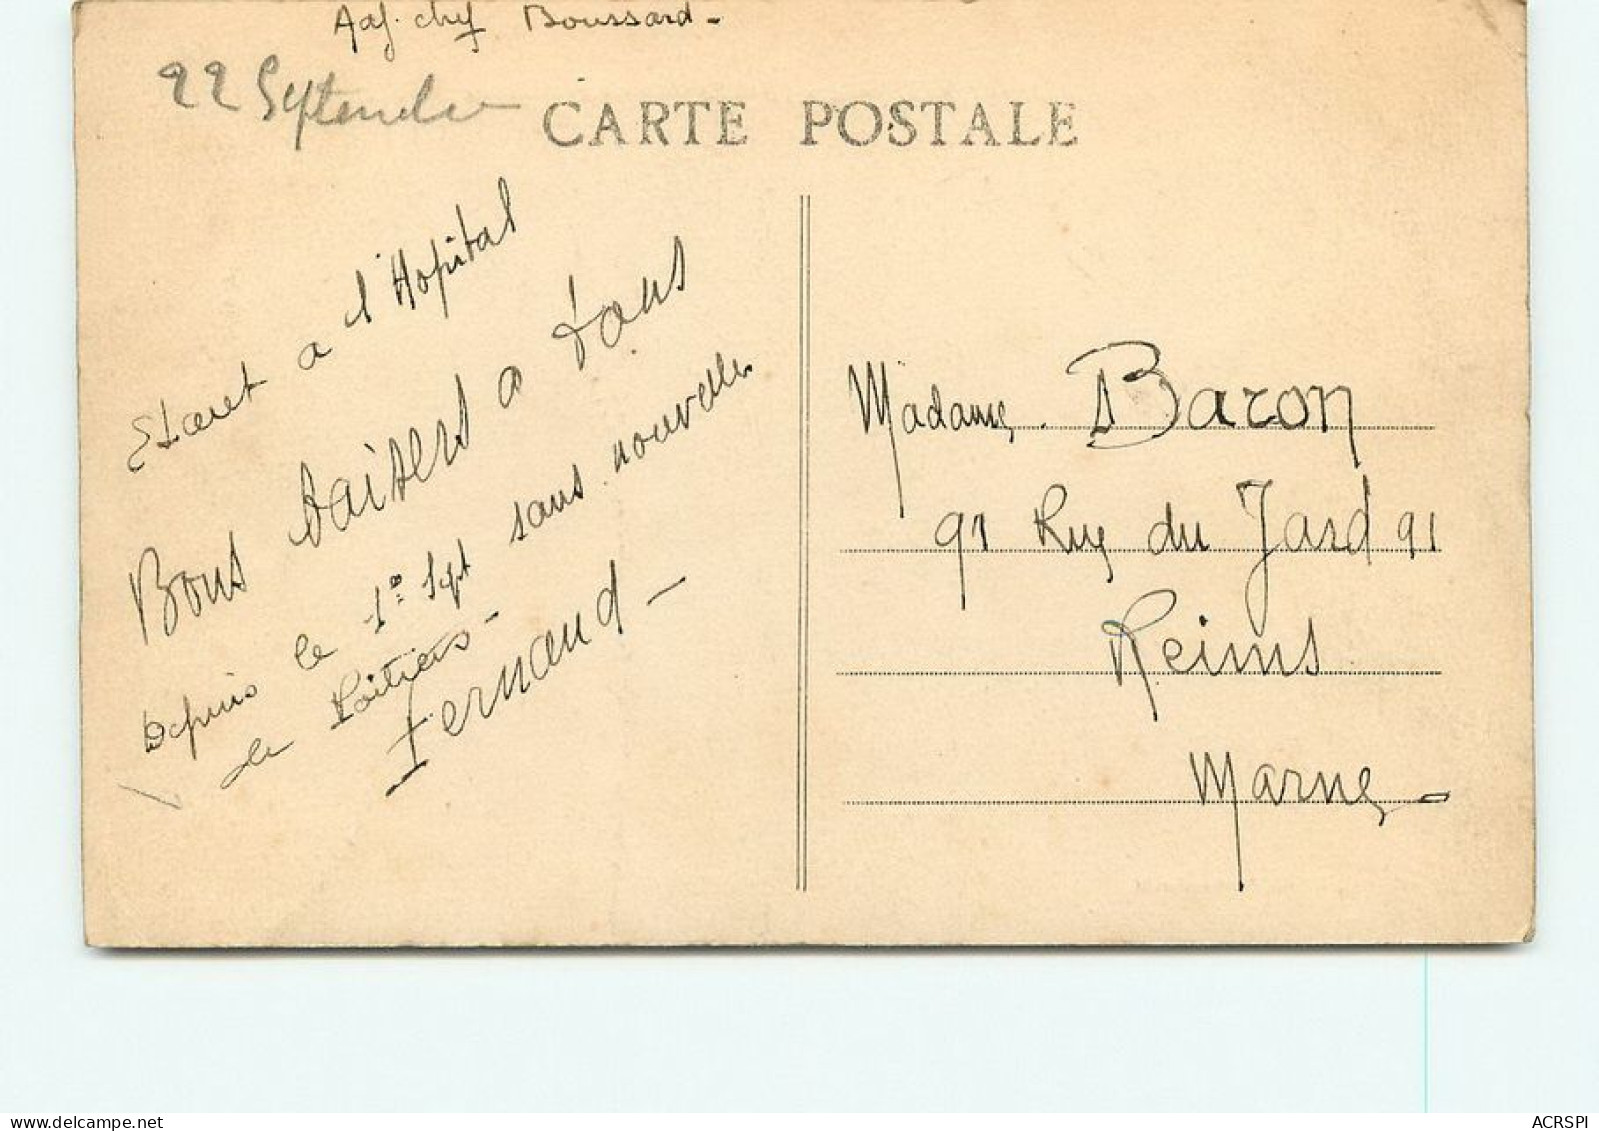 Adj. chef Boussard -
22 Septembre
CARTE POSTALE
a l'Hopital
Bons baisers a tous
Depuis le 1er Sept sans nouvelles
de Poitiers -
Fernand -
Madame. Baron
91 Rue du Jard 91
Reims
Marne -
ACRSPI